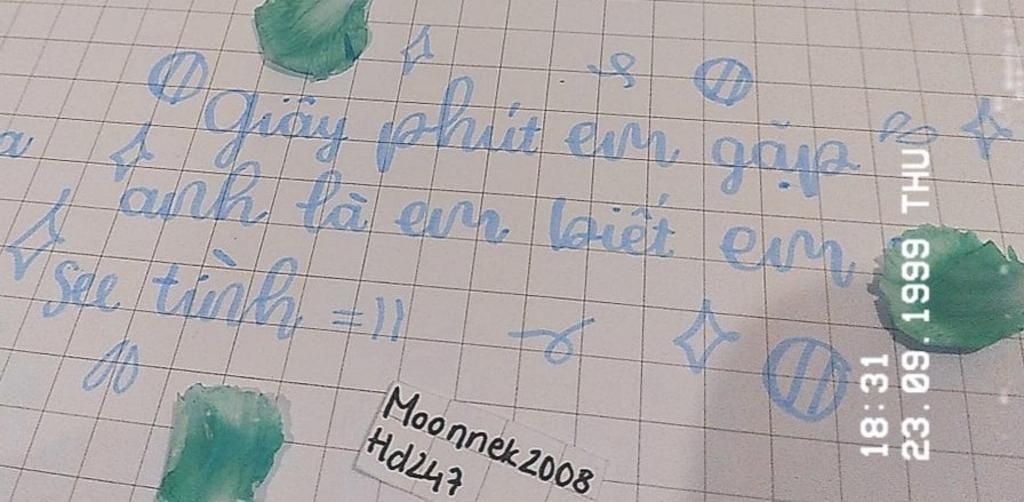 Giây phút em gặp
anh là em biết em
See tình =))
Moonnek2008
Hd247
18:31
23.09.1999 THU